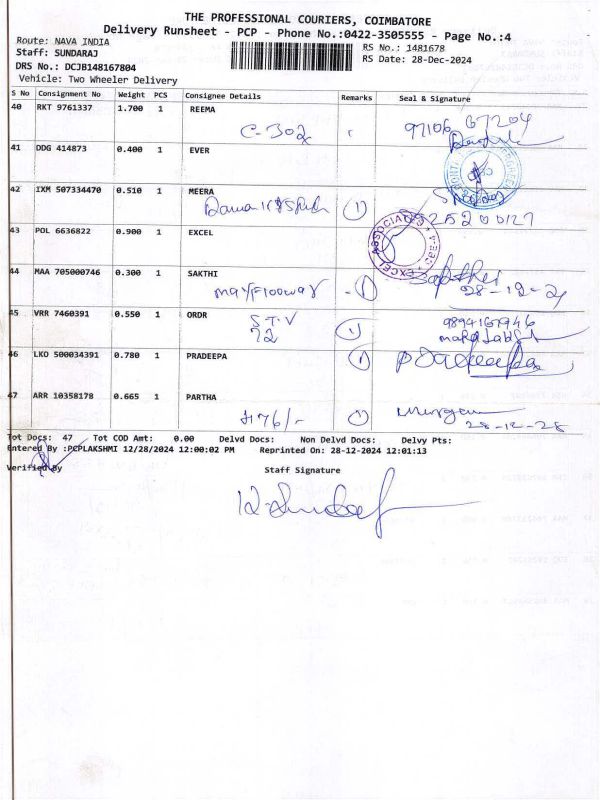 THE PROFESSIONAL COURIERS, COIMBATORE
Delivery Runsheet - PCP - Phone No.:0422-3505555 - Page No.:4
Route: NAVA INDIA
RS No.: 1481678
Staff: SUNDARAJ
RS Date: 28-Dec-2024
DRS No.: DCJB148167804
Vehicle: Two Wheeler Delivery
S No Consignment No Weight PCS Consignee Details Remarks Seal & Signature
40 RKT 9761337 1.700 1 REEMA
C-302 97106 67204
41 DDG 414873 0.400 1 EVER
42 IXM 507334470 0.510 1 MEERA
1
43 POL 6636822 0.900 1 EXCEL
EXCEL ASSOCIATES
44 MAA 705000746 0.300 1 SAKTHI
mayFlooway 1 28-12-2
45 VRR 7460391 0.550 1 ORDR
S.T.V 9894167946
72 1
46 LKO 500034391 0.780 1 PRADEEPA
1 Pradeepa
47 ARR 10358178 0.665 1 PARTHA
1 Murgan
28-12-28
Tot Docs: 47 Tot COD Amt: 0.00 Delvd Docs: Non Delvd Docs: Delvy Pts:
Entered By :PCPLAKSHMI 12/28/2024 12:00:02 PM Reprinted On: 28-12-2024 12:01:13
Verified By Staff Signature